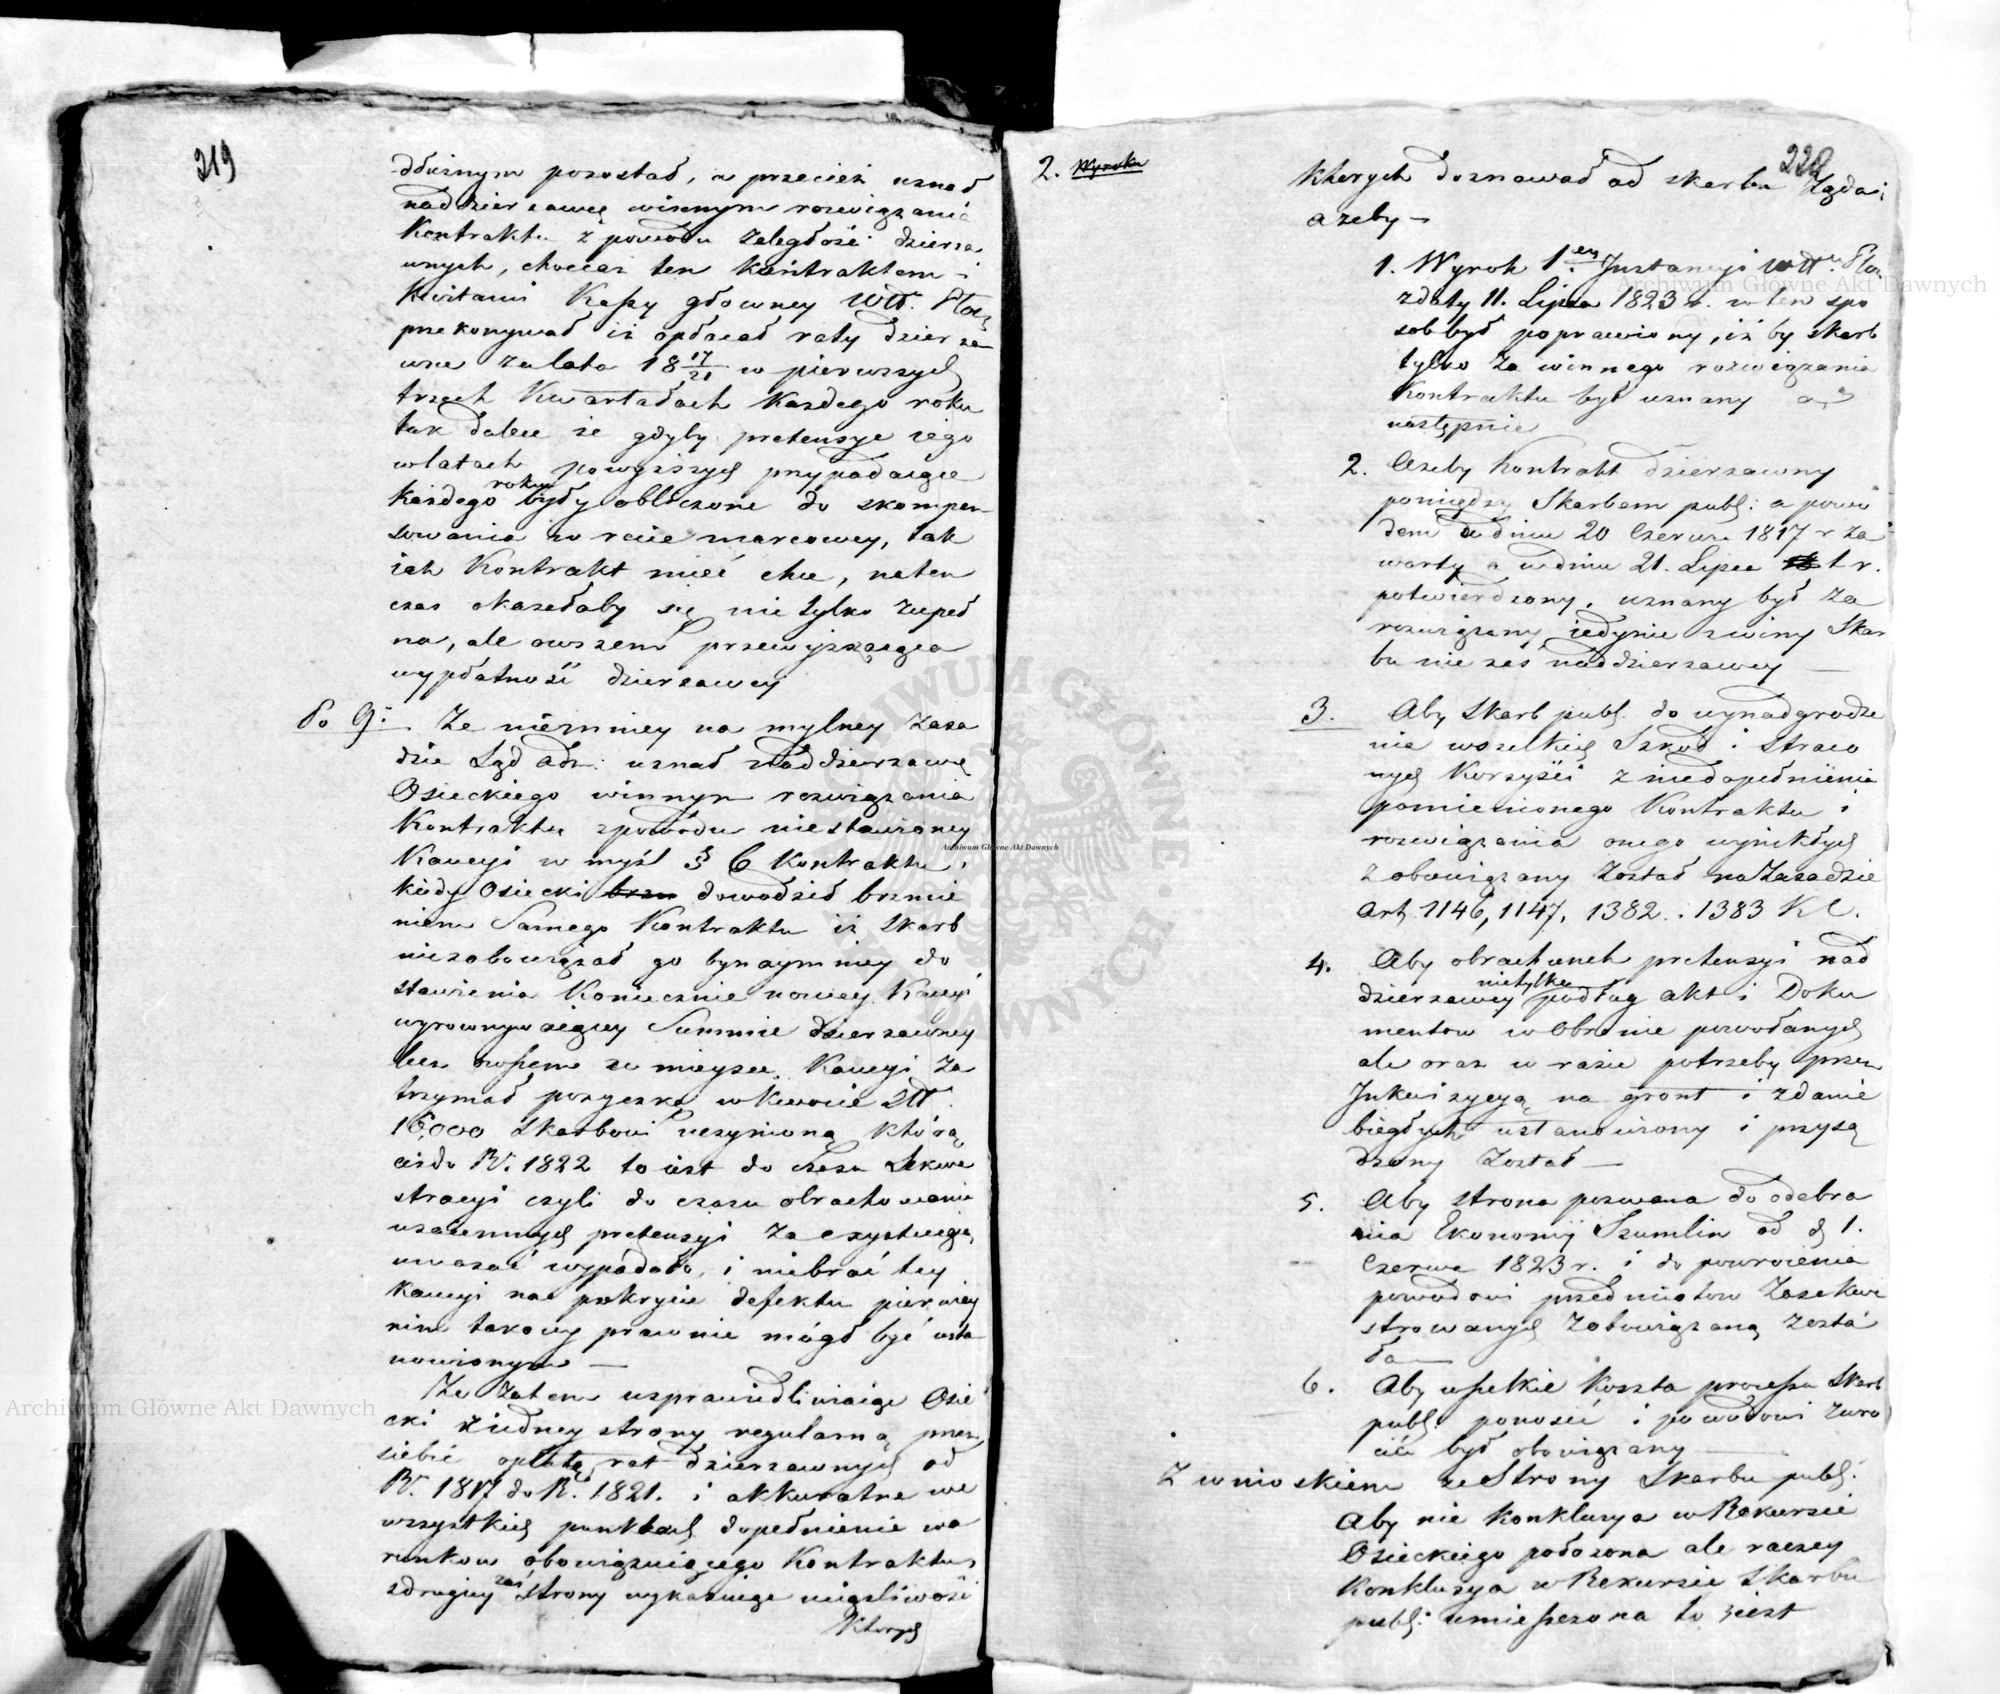 219
dłużnym pozostał, a przecież uznał
naddzierżawcę winnym rozwiązania
Kontraktu z powodu zaległości dzierża
wnych, chociaż ten kontraktem i
kwitami Kassy głowney Wtt. Płoc
przekonywał iż opłacał raty dzierża
wne za lata 18 17/21 w pierwszych
trzech Kwartałach każdego roku
tak dalece że gdyby pretensye iego
w latach powyższych przypadaiące
każdego roku były obliczone do skompen
sowania w racie marcowey, iak
ich Kontrakt mieć chce, naten
czas okazałaby się nie tylko zupeł
na, ale owszem przewyższaiąca
wypłatność dzierżawcy
Po 9. Że niemniey na mylney zasa
dzie Sąd adm: uznał Naddzierżawcę
Osieckiego winnym rozwiązania
Kontraktu z powodu niestawioney
Kaucyi w myśl § 6 Kontraktu,
kiedy Osiecki brzm dowodził brzmie
niem Samego Kontraktu iż Skarb
niezobowiązał go bynaymniey do
stawienia Koniecznie nowey Kaucyi
wyrownywaiącey Summie dzierżawney
lecz owszem za mieysce Kaucyi za
trzymał pożyczkę w kwocie Ztt.
16,000 Skarbowi uczynioną którą
aż do R. 1822 to iest do czasu Sekwe
stracyi czyli do czasu obrachowania
wzaiemnych pretensyi za exystuiącą
uważać wypadało, i niebrać tey
kaucyi na pokrycie defektu pierwiey
nim takowy prawnie mógł być usta
nowionym —
Że zatem usprawiedliwiaiąc Osie
cki z iedney strony regularną przez
siebie opłatę rat dzierżawnych od
R. 1817 do R. 1821. i akkuratne we
wszystkich punktach dopełnienie wa
runkow obowiązuiącego Kontraktu,
z drugiey zaś strony wykazuiąc uciążliwości
Ktorych
220
2. Wyroku
Ktorych doznawał od skarbu żąda:
ażeby —
1. Wyrok 1ey Instancyi Wtt. Płoc.
z daty 11. Lipca 1823 r. w ten spo
sob był poprawiony, iż by skarb
tylko za winnego rozwiązania
Kontraktu był uznany a
następnie
2. Ażeby kontrakt dzierżawny
pomiędzy Skarbem publ: a powo
dem w dniu 20 Czerwca 1817 r za
warty a w dniu 21. Lipca t. r.
potwierdzony, uznany był za
rozwiązany iedynie z winy Skar
bu nie zaś naddzierżawcy —
3. Aby Skarb publ. do wynadgrodze
nia wszelkich Szkod i straco
nych Korzyści z niedopełnienia
pomienionego Kontraktu i
rozwiązania onego wynikłych
zobowiązany został na zasadzie
Art. 1146, 1147, 1382. i 1383 K C.
4. Aby obrachunek pretensyi nad
dzierżawcy nietylko podług akt i Doku
mentow w obronie powołanych
ale oraz w razie potrzeby przez
Inkwizycyą na gront i zdanie
biegłych ustanowiony i przysą
dzony został —
5. Aby strona pozwana do odebra
nia Ekonomij Szumlin od d. 1.
Czerwca 1823 r. i do powrocenia
powodowi przedmiotow zasekwe
strowanych zobowiązaną zosta
ła —
6. Aby wszelkie koszta processu Skarb
publ. ponosić i powodowi zwro
cić był obowiązany —
Z wnioskiem ze Strony Skarbu publ:
Aby nie konkluzya w Rekursie
Osieckiego położona ale raczey
Konkluzya w Rekursie Skarbu
publ: umieszczona to iest
Archiwum Główne Akt Dawnych
Archiwum Główne Akt Dawnych
Archiwum Główne Akt Dawnych
ARCHIWUM GŁÓWNE AKT DAWNYCH